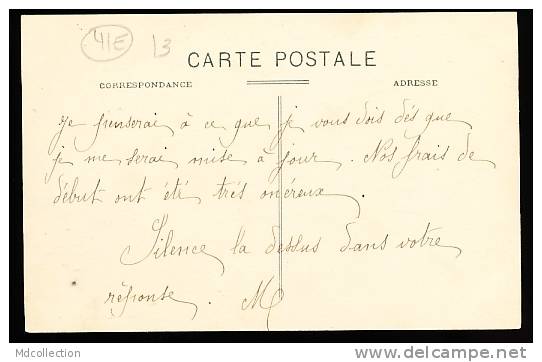 41E 13
CARTE POSTALE
CORRESPONDANCE ADRESSE
Je penserai à ce que je vous dois dés que
je me serai mise à jour. Nos frais de
début ont été trés onéreux.
Silence la dessus dans votre
réponse. M
Mdcollection
delcampe.net